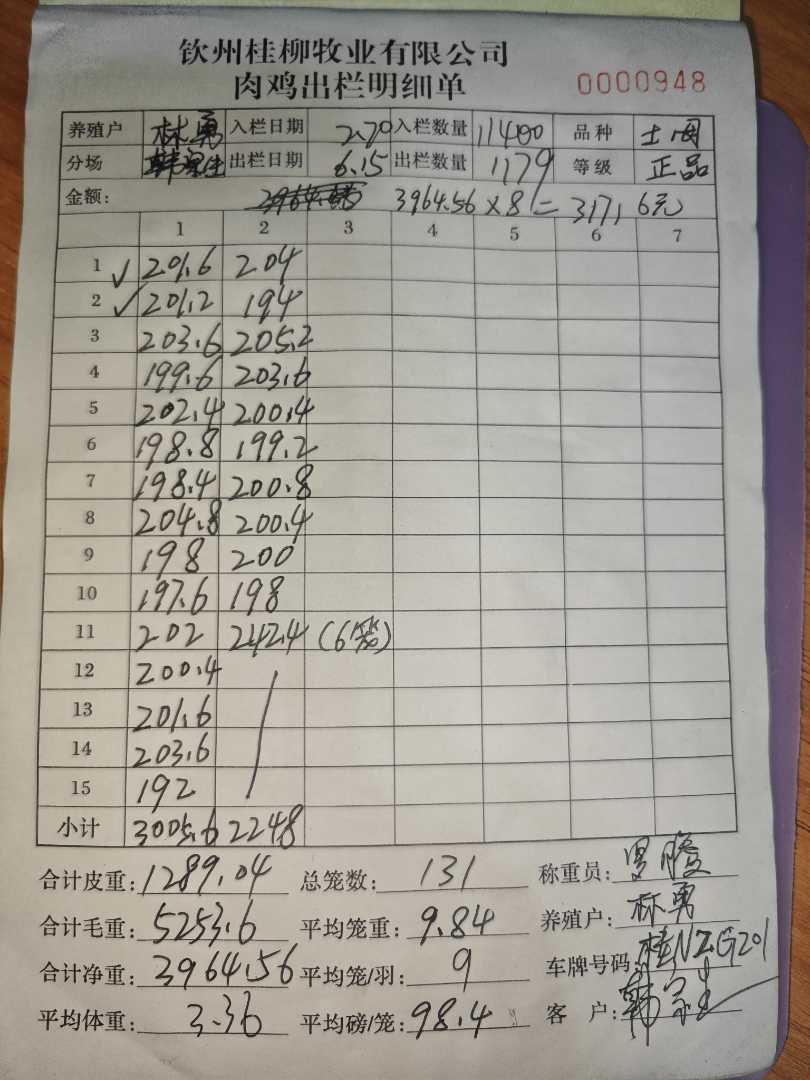 钦州桂柳牧业有限公司
肉鸡出栏明细单 0000948
养殖户 林勇 入栏日期 2.20 入栏数量 11400 品种 土阉
分场 出栏日期 6.15 出栏数量 1179 等级 正品
金额: 3964.56×8=31716元
1 2 3 4 5 6 7
1 ✓ 201.6 204
2 ✓ 201.2 194
3 203.6 205.2
4 199.6 203.6
5 202.4 200.4
6 198.8 199.2
7 198.4 200.8
8 204.8 200.4
9 198 200
10 197.6 198
11 202 242.4 (6笼)
12 200.4
13 201.6
14 203.6
15 192
小计 3005.6 2248
合计皮重: 1289.04 总笼数: 131 称重员:
合计毛重: 5253.6 平均笼重: 9.84 养殖户: 林勇
合计净重: 3964.56 平均笼/羽: 9 车牌号码: 桂NZG201
平均体重: 3.36 平均磅/笼: 98.4 客 户: 韩